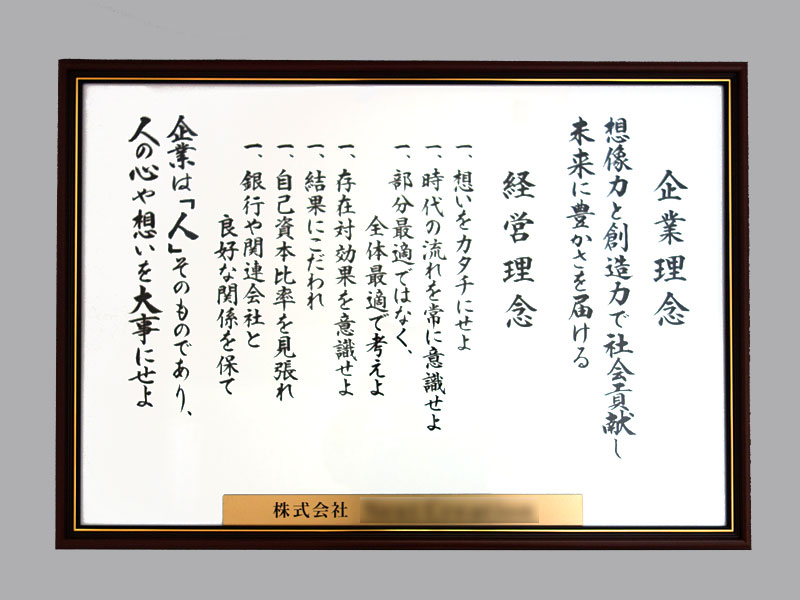 企業理念
想像力と創造力で社会貢献し
未来に豊かさを届ける
経営理念
一、想いをカタチにせよ
一、時代の流れを常に意識せよ
一、部分最適ではなく、
全体最適で考えよ
一、存在対効果を意識せよ
一、結果にこだわれ
一、自己資本比率を見張れ
一、銀行や関連会社と
良好な関係を保て
企業は「人」そのものであり、
人の心や想いを大事にせよ
株式会社